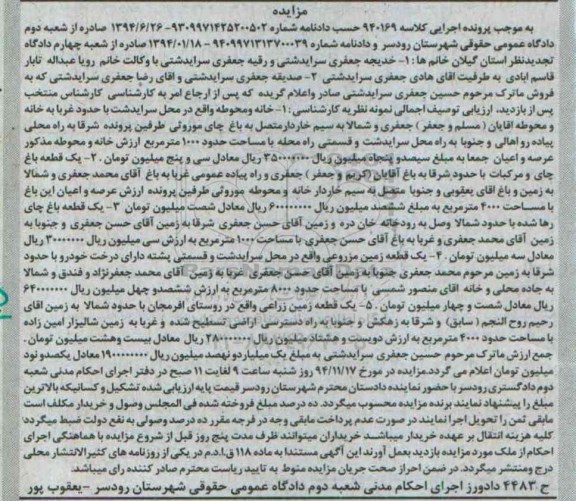 مزایده
به موجب پرونده اجرایی کلاسه ۹۴۰۱۶۹ حسب دادنامه شماره ۹۳۰۹۹۷۱۴۲۵۲۰۰۵۰۲ - ۱۳۹۴/۶/۲۶ صادره از شعبه دوم
دادگاه عمومی حقوقی شهرستان رودسر و دادنامه شماره ۹۴۰۹۹۷۱۳۱۳۷۰۰۰۳۹ - ۱۳۹۴/۰۱/۱۸ صادره از شعبه چهارم دادگاه
تجدیدنظر استان گیلان خانم ها : ۱- خدیجه جعفری سرایدشتی و رقیه جعفری سرایدشتی با وکالت خانم رویا عبداله تابار
قاسم ابادی به طرفیت اقای هادی جعفری سرایدشتی ۲- صدیقه جعفری سرایدشتی و اقای رضا جعفری سرایدشتی که به
فروش ماترک مرحوم حسین جعفری سرایدشتی صادر واعلام گردیده که پس از ارجاع امر به کارشناسی کارشناس منتخب
پس از بازدید، ارزیابی توصیف اجمالی نمونه نظریه کارشناسی : ۱- خانه ومحوطه واقع در محل سرایدشت با حدود غربا به خانه
و محوطه اقایان ( مسلم و جعفر ) جعفری و شمالا به سیم خاردار متصل به باغ چای موروثی طرفین پرونده شرقا به راه محلی
پیاده رو اهالی و جنوبا به راه محل سرایدشت و قسمتی راه محله با مساحت حدود ۱۰۰۰ مترمربع ارزش خانه و محوطه مذکور
عرصه و اعیان جمعا به مبلغ سیصدو پنجاه میلیون ریال ۳۵۰۰۰۰۰۰۰ ریال معادل سی و پنج میلیون تومان . ۲- یک قطعه باغ
چای و مرکبات با حدود شرقا به باغ آقایان (کریم و جعفر ) جعفری و راه پیاده عمومی غربا به باغ آقای محمد جعفری و شمالا
به زمین و باغ اقای یعقوبی و جنوبا متصل به سیم خاردار خانه و محوطه موروثی طرفین پرونده ارزش عرصه و اعیان این باغ
با مساحت ۴۰۰۰ مترمربع به مبلغ ششصد میلیون ریال ۶۰۰۰۰۰۰۰۰ ریال معادل شصت میلیون تومان ۳- یک قطعه باغ چای
رها شده با حدود شمالا وصل به رودخانه خان دره و زمین آقای حسن جعفری شرقا به زمین آقای حسن جعفری و جنوبا به
زمین آقای محمد جعفری و غربا به باغ آقای حسن جعفری با مساحت ۱۰۰۰ مترمربع به ارزش سی میلیون ریال ۳۰۰۰۰۰۰۰ ریال
معادل سه میلیون تومان . ۴- یک قطعه زمین مزروعی واقع در محل سرایدشت و قسمتی پشته دارای درخت خودرو با حدود
شرقا به زمین مرحوم محمد جعفری جنوبا به زمین آقای حسن جعفری غربا به زمین آقای محمد جعفرنژاد و فندق و شمالا
به جاده محلی و خانه اقای منصور شمسی با مساحت حدود ۸۰۰۰ مترمربع به ارزش ششصدو چهل میلیون ریال ۶۴۰۰۰۰۰۰۰
ریال معادل شصت و چهار میلیون تومان . ۵- یک قطعه زمین زراعی واقع در روستای افرمجان با حدود شمالا به زمین اقای
رحیم روح النجم ( سابق ) و شرقا به زهکش و جنوبا به راه دسترسی اراضی تسطیح شده و غربا به زمین شالیزار امین زاده
با مساحت حدود ۴۰۰۰ مترمربع به ارزش دویست و هشتاد میلیون ریال ۲۸۰۰۰۰۰۰۰ ریال معادل بیست وهشت میلیون تومان .
جمع ارزش ماترک مرحوم حسین جعفری سرایدشتی به مبلغ یک میلیاردو نهصد میلیون ریال ۱۹۰۰۰۰۰۰۰۰ معادل یکصدو نود
میلیون تومان اعلام می گردد.مزایده در مورخ ۹۴/۱۱/۱۷ روز شنبه ساعت ۹ لغایت ۱۱ صبح در دفتر اجرای احکام مدنی شعبه
دوم دادگستری رودسر با حضور نماینده دادستان محترم شهرستان رودسر قیمت پایه ارزیابی شده تشکیل و کسانیکه بالاترین
مبلغ را پیشنهاد نمایند برنده مزایده محسوب میگردد. ده درصد مبلغ فروخته شده فی المجلس وصول و خریدار مکلف است
مابقی ثمن را تحویل اجرا نمایند در صورت عدم پرداخت مابقی وجه در فرجه مقرر ده درصد وصولی به نفع دولت ضبط میگردد/
کلیه هزینه انتقال بر عهده خریدار میباشد خریداران میتوانند ظرف مدت پنج روز قبل از شروع مزایده با هماهنگی اجرای
احکام از ملک مورد مزایده بازدید بعمل آورند این آگهی مستندا به ماده ۱۱۸ ق.ا.د.م در یکی از روزنامه های کثیرالانتشار محلی
درج ومنتشر میگردد. در ضمن احراز صحت جریان مزایده منوط به تایید ریاست محترم صادر کننده رای میباشد:
ج ۴۴۸۳ دادورز اجرای احکام مدنی شعبه دوم دادگاه عمومی حقوقی شهرستان رودسر - یعقوب پور